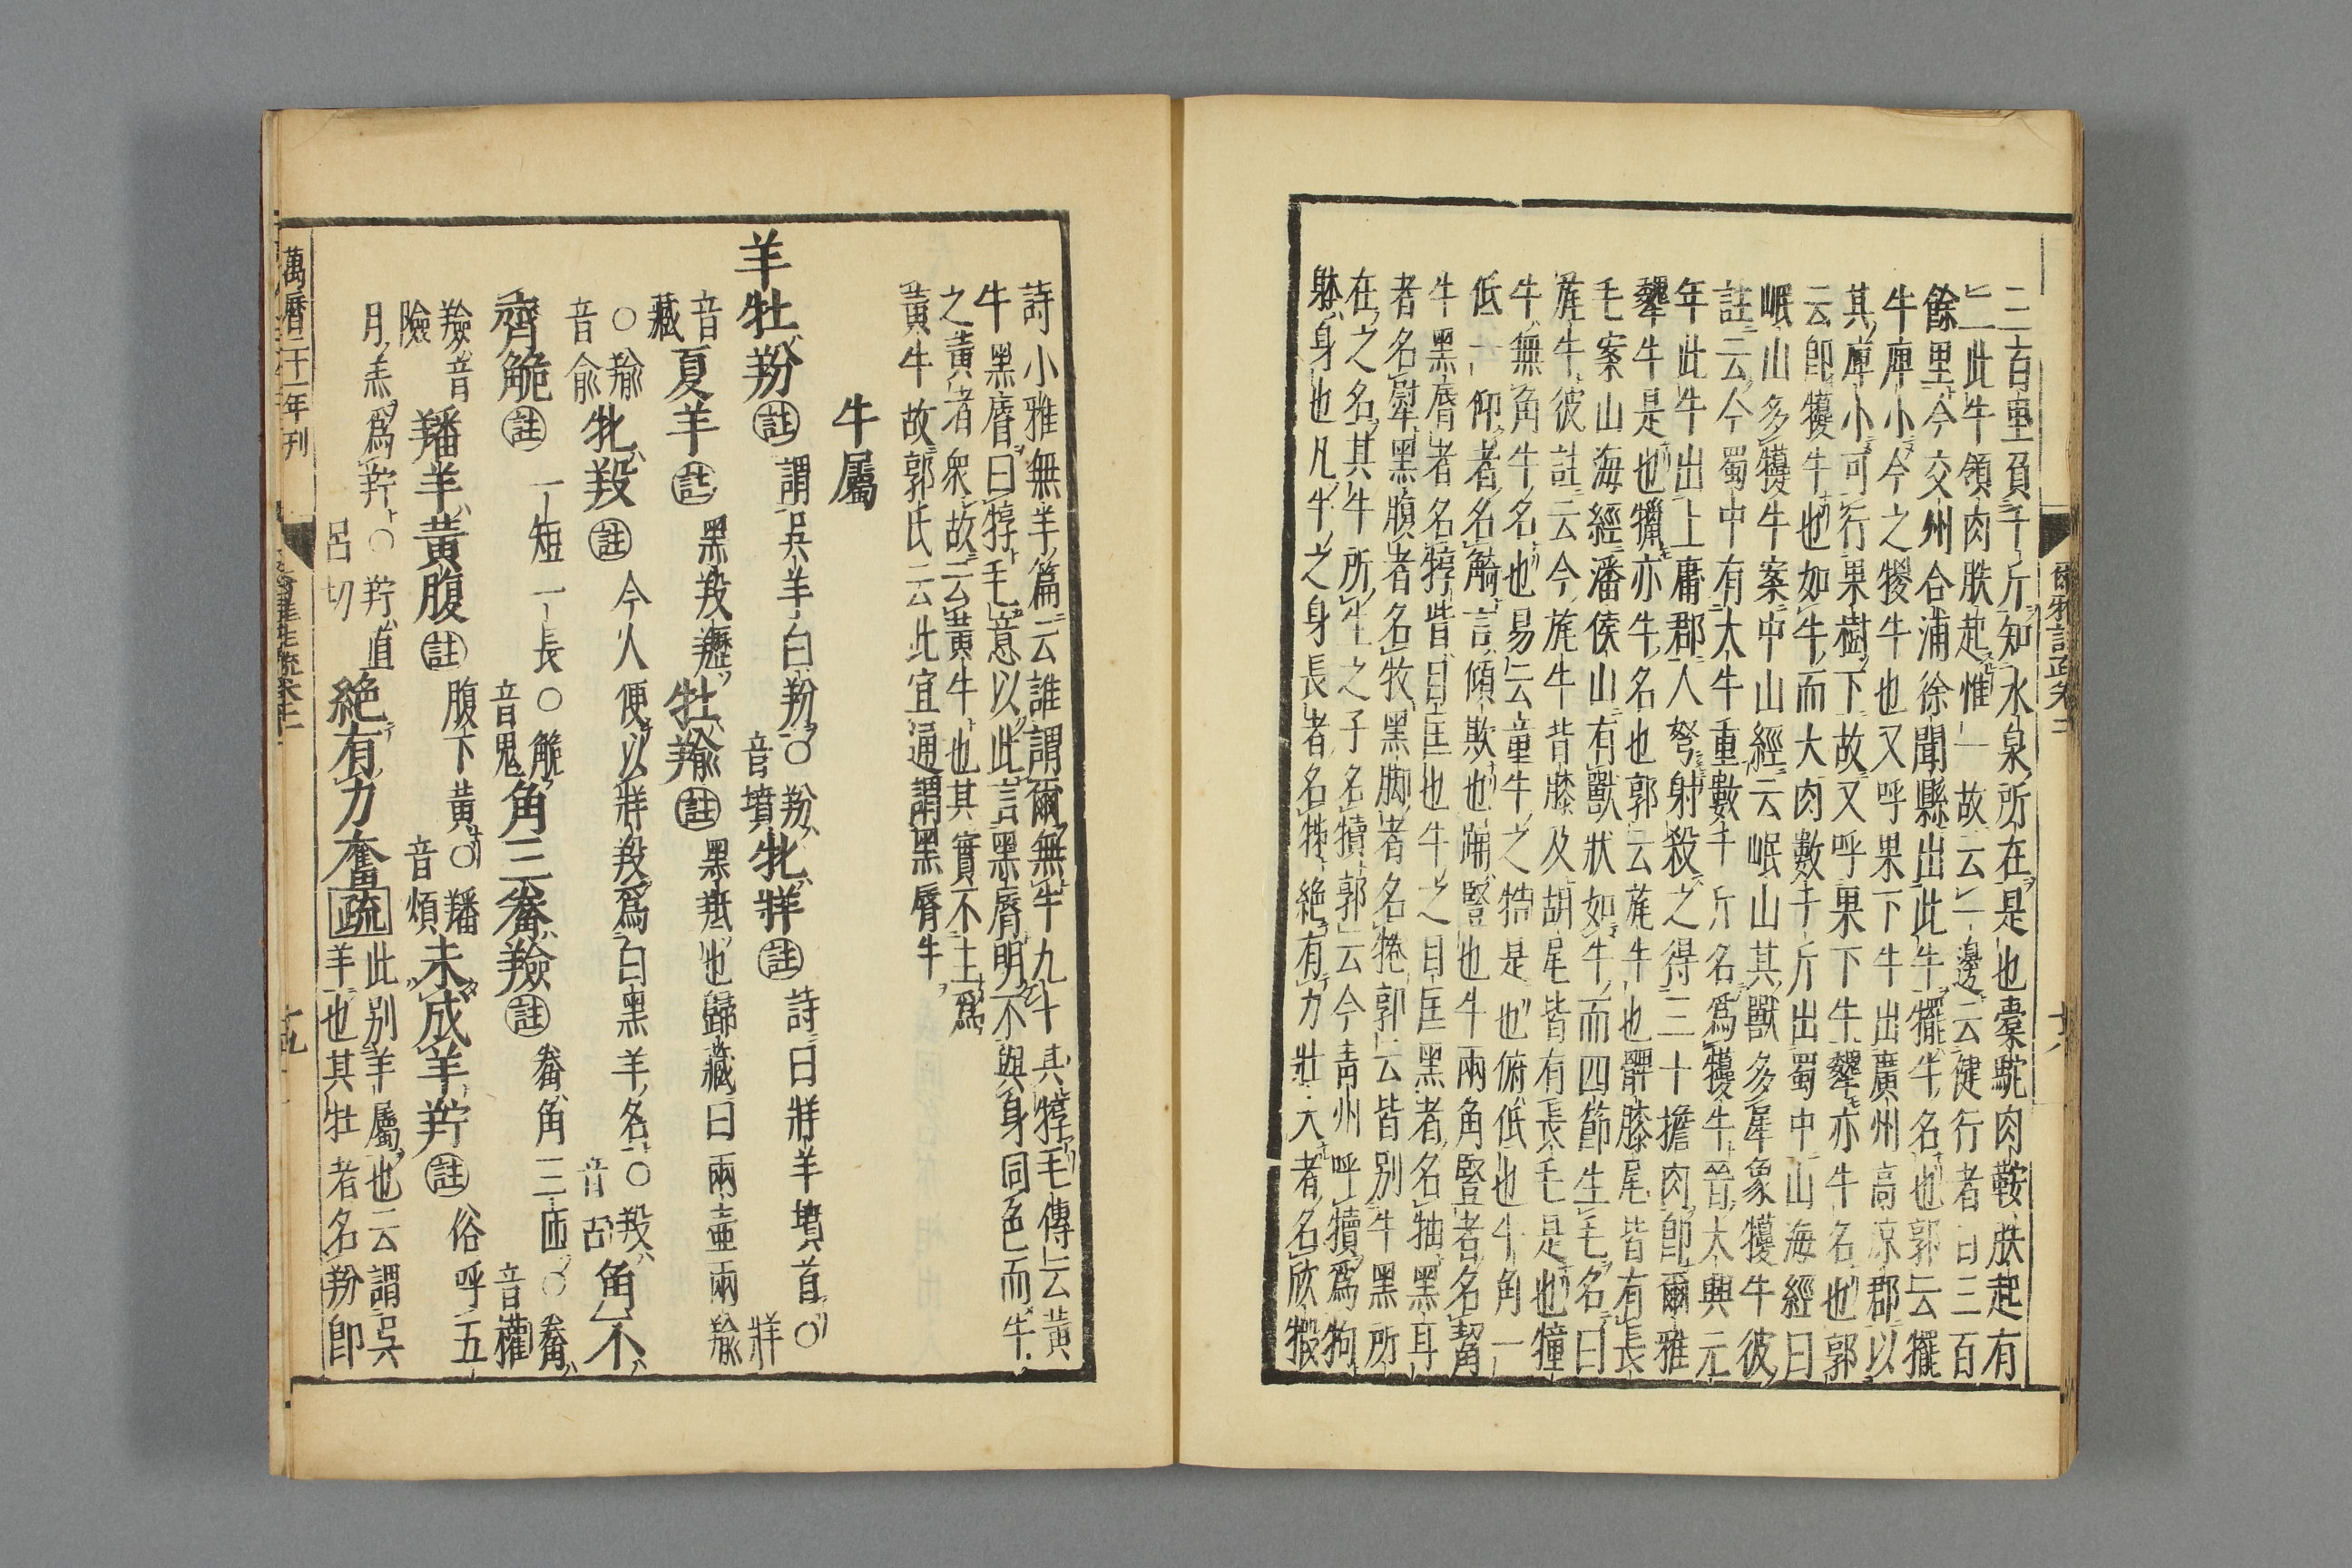 爾雅註疏卷十一
十八
二百里負千斤知水泉所在是也橐駝肉鞍䏢起有
二此牛領肉䏢起惟一故云一邊云健行者日三百
餘里今交州合浦徐聞縣出此牛犤牛名也郭云犤
牛庳小今之㹎牛也又呼果下牛出廣州高凉郡以
其庳小可行果樹下故又呼果下牛犩亦牛名也郭
云卽犪牛也如牛而大肉數千斤出蜀中山海經曰
岷山多犪牛案中山經云岷山其獸多犀象犪牛彼
註云今蜀中有大牛重數千斤名爲犪牛晉太興元
年此牛出上庸郡人弩射殺之得三十擔肉卽爾雅
犩牛是也犣亦牛名也郭云旄牛也髀膝尾皆有長
毛案山海經潘侯山有獸狀如牛而四節生毛名曰
旄牛彼註云今旄牛背膝及胡尾皆有長毛是也犝
牛無角牛名也易云童牛之牿是也俯低也牛角一
低一仰者名觭言傾欹也踊豎也牛兩角豎者名觢
牛黑脣者名犉眥目匡也牛之目匡黑者名牰黑耳
者名犚黑腹者名牧黑脚者名犈郭云皆别牛黑所
在之名其牛所生之子名犢郭云今靑州呼犢爲㸬
躰身也凡牛之身長者名㸬絶有力壯大者名欣犌
詩小雅無羊篇云誰謂爾無牛九十其犉毛傳云黃
牛黑脣曰犉毛意以此言黑脣明不與身同色而牛
之黃者衆故云黃牛也其實不主爲
黃牛故郭氏云此宜通謂黑脣牛
牛屬
羊牡羒註謂吳羊白羒○羒音墳牝牂註詩曰牂羊墳首○牂
音藏夏羊註黑羖䍽牡羭註黑羝也歸藏曰兩壷兩羭
○羭音俞牝羖註今人便以牂羖爲白黑羊名○羖音古角不
齊觤註一短一長○觤音鬼角三觠羷註觠角三匝○觠音權
羷音險羳羊黃腹註腹下黃○羳音煩未成羊羜註俗呼五
月羔爲羜○羜直呂切絶有力奮疏此别羊屬也云謂吳羊也其牡者名羒卽
萬曆二十一年刊
爾雅註疏卷十一
十九